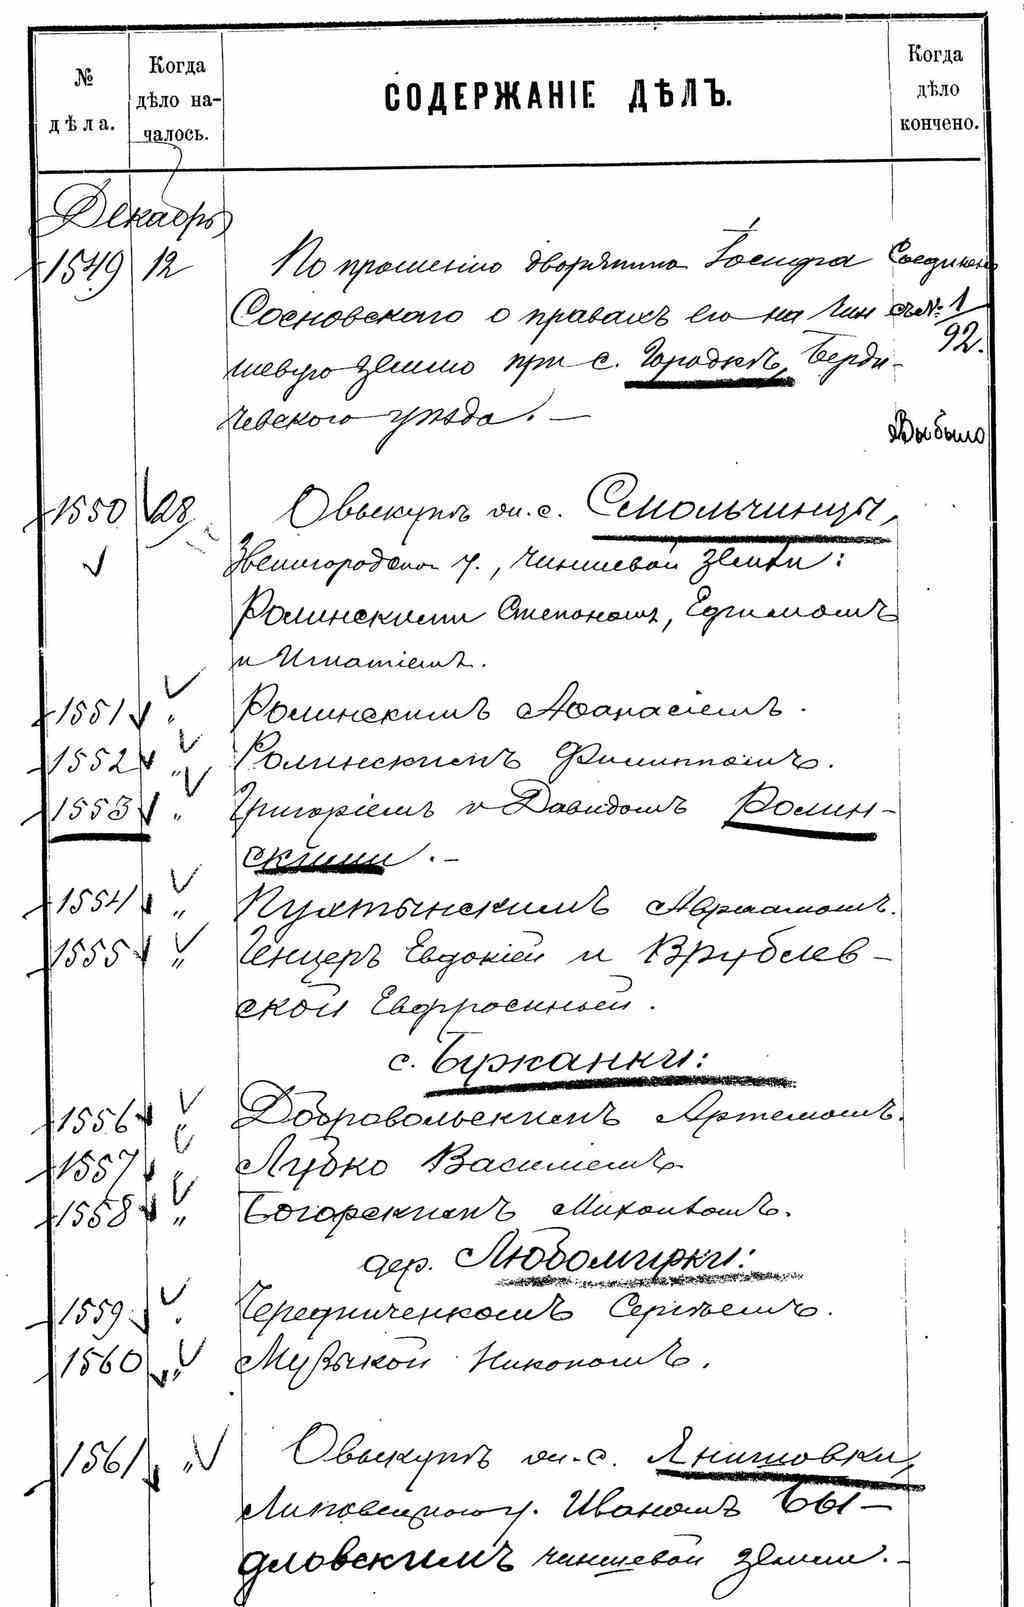 № дѣла.
Когда дѣло на-чалось.
СОДЕРЖАНІЕ ДѢЛЪ.
Когда дѣло кончено.
Декабрь
1549 12 По прошенію дворянина Іосифа
Сосновскаго о правахъ его на чин
шевую землю при с. Городкѣ, Берди-
чевского уѣзда. —
Соединено
съ № 1/92.
Выбыло
1550 28 О выкупѣ въ м. с. Смольчинцы,
Звенигородскаго у., чиншевой земли:
Ролинскими Степаномъ, Ефимомъ
и Игнатіемъ.
1551 " Ролинскимъ Афанасіемъ.
1552 " Ролинскимъ Филиппомъ.
1553 " Григоріемъ и Давидомъ Ролин-
скими. —
1554 " Пухтынскимъ Авраамомъ.
1555 " Генцеръ Евдокіей и Врублев-
ской Евфросиньей.
с. Бужанки:
1556 " Добровольскимъ Артемомъ.
1557 " Лубко Василіемъ
1558 " Богорскимъ Михаиломъ.
дер. Любомирки:
1559 " Чередниченкомъ Сергѣемъ.
1560 " Музыкой Никономъ.
1561 " О выкупѣ въ с. Янишовки,
Липовецкаго у. Иваномъ Бы-
дловскимъ чиншевой земли. —